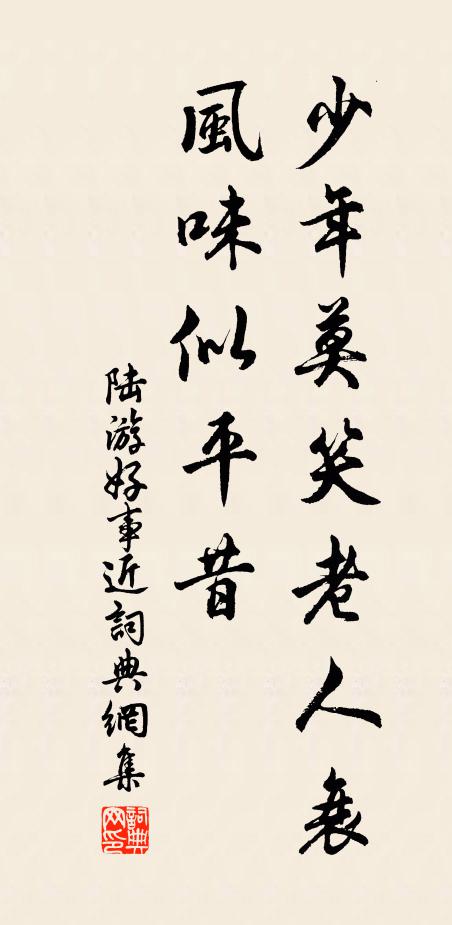 少年莫笑老人衰
風味似平昔
陆游好事近詞典網集
詞典网印